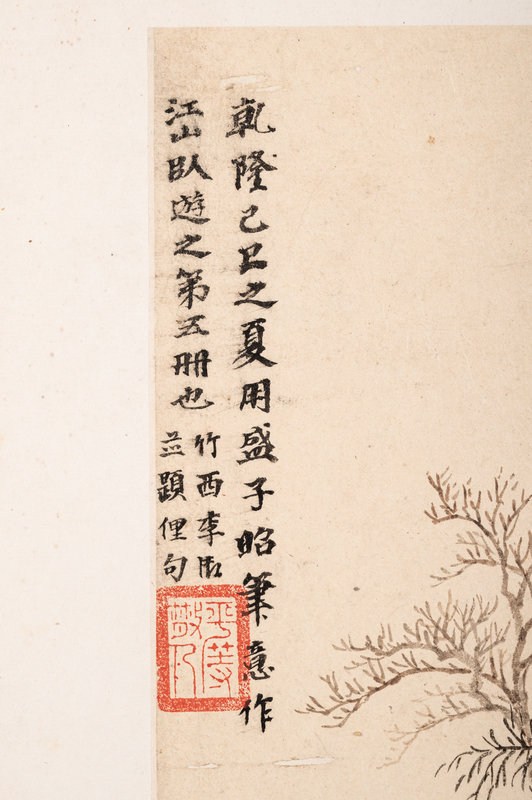 乾隆己丑之夏用盛子昭筆意作
江山臥遊之第五册也
竹西李
並題俚句
平等